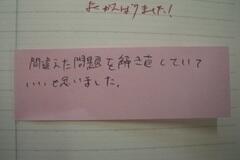 よくがんばりました!
間違えた問題を解き直していて
いいと思いました。